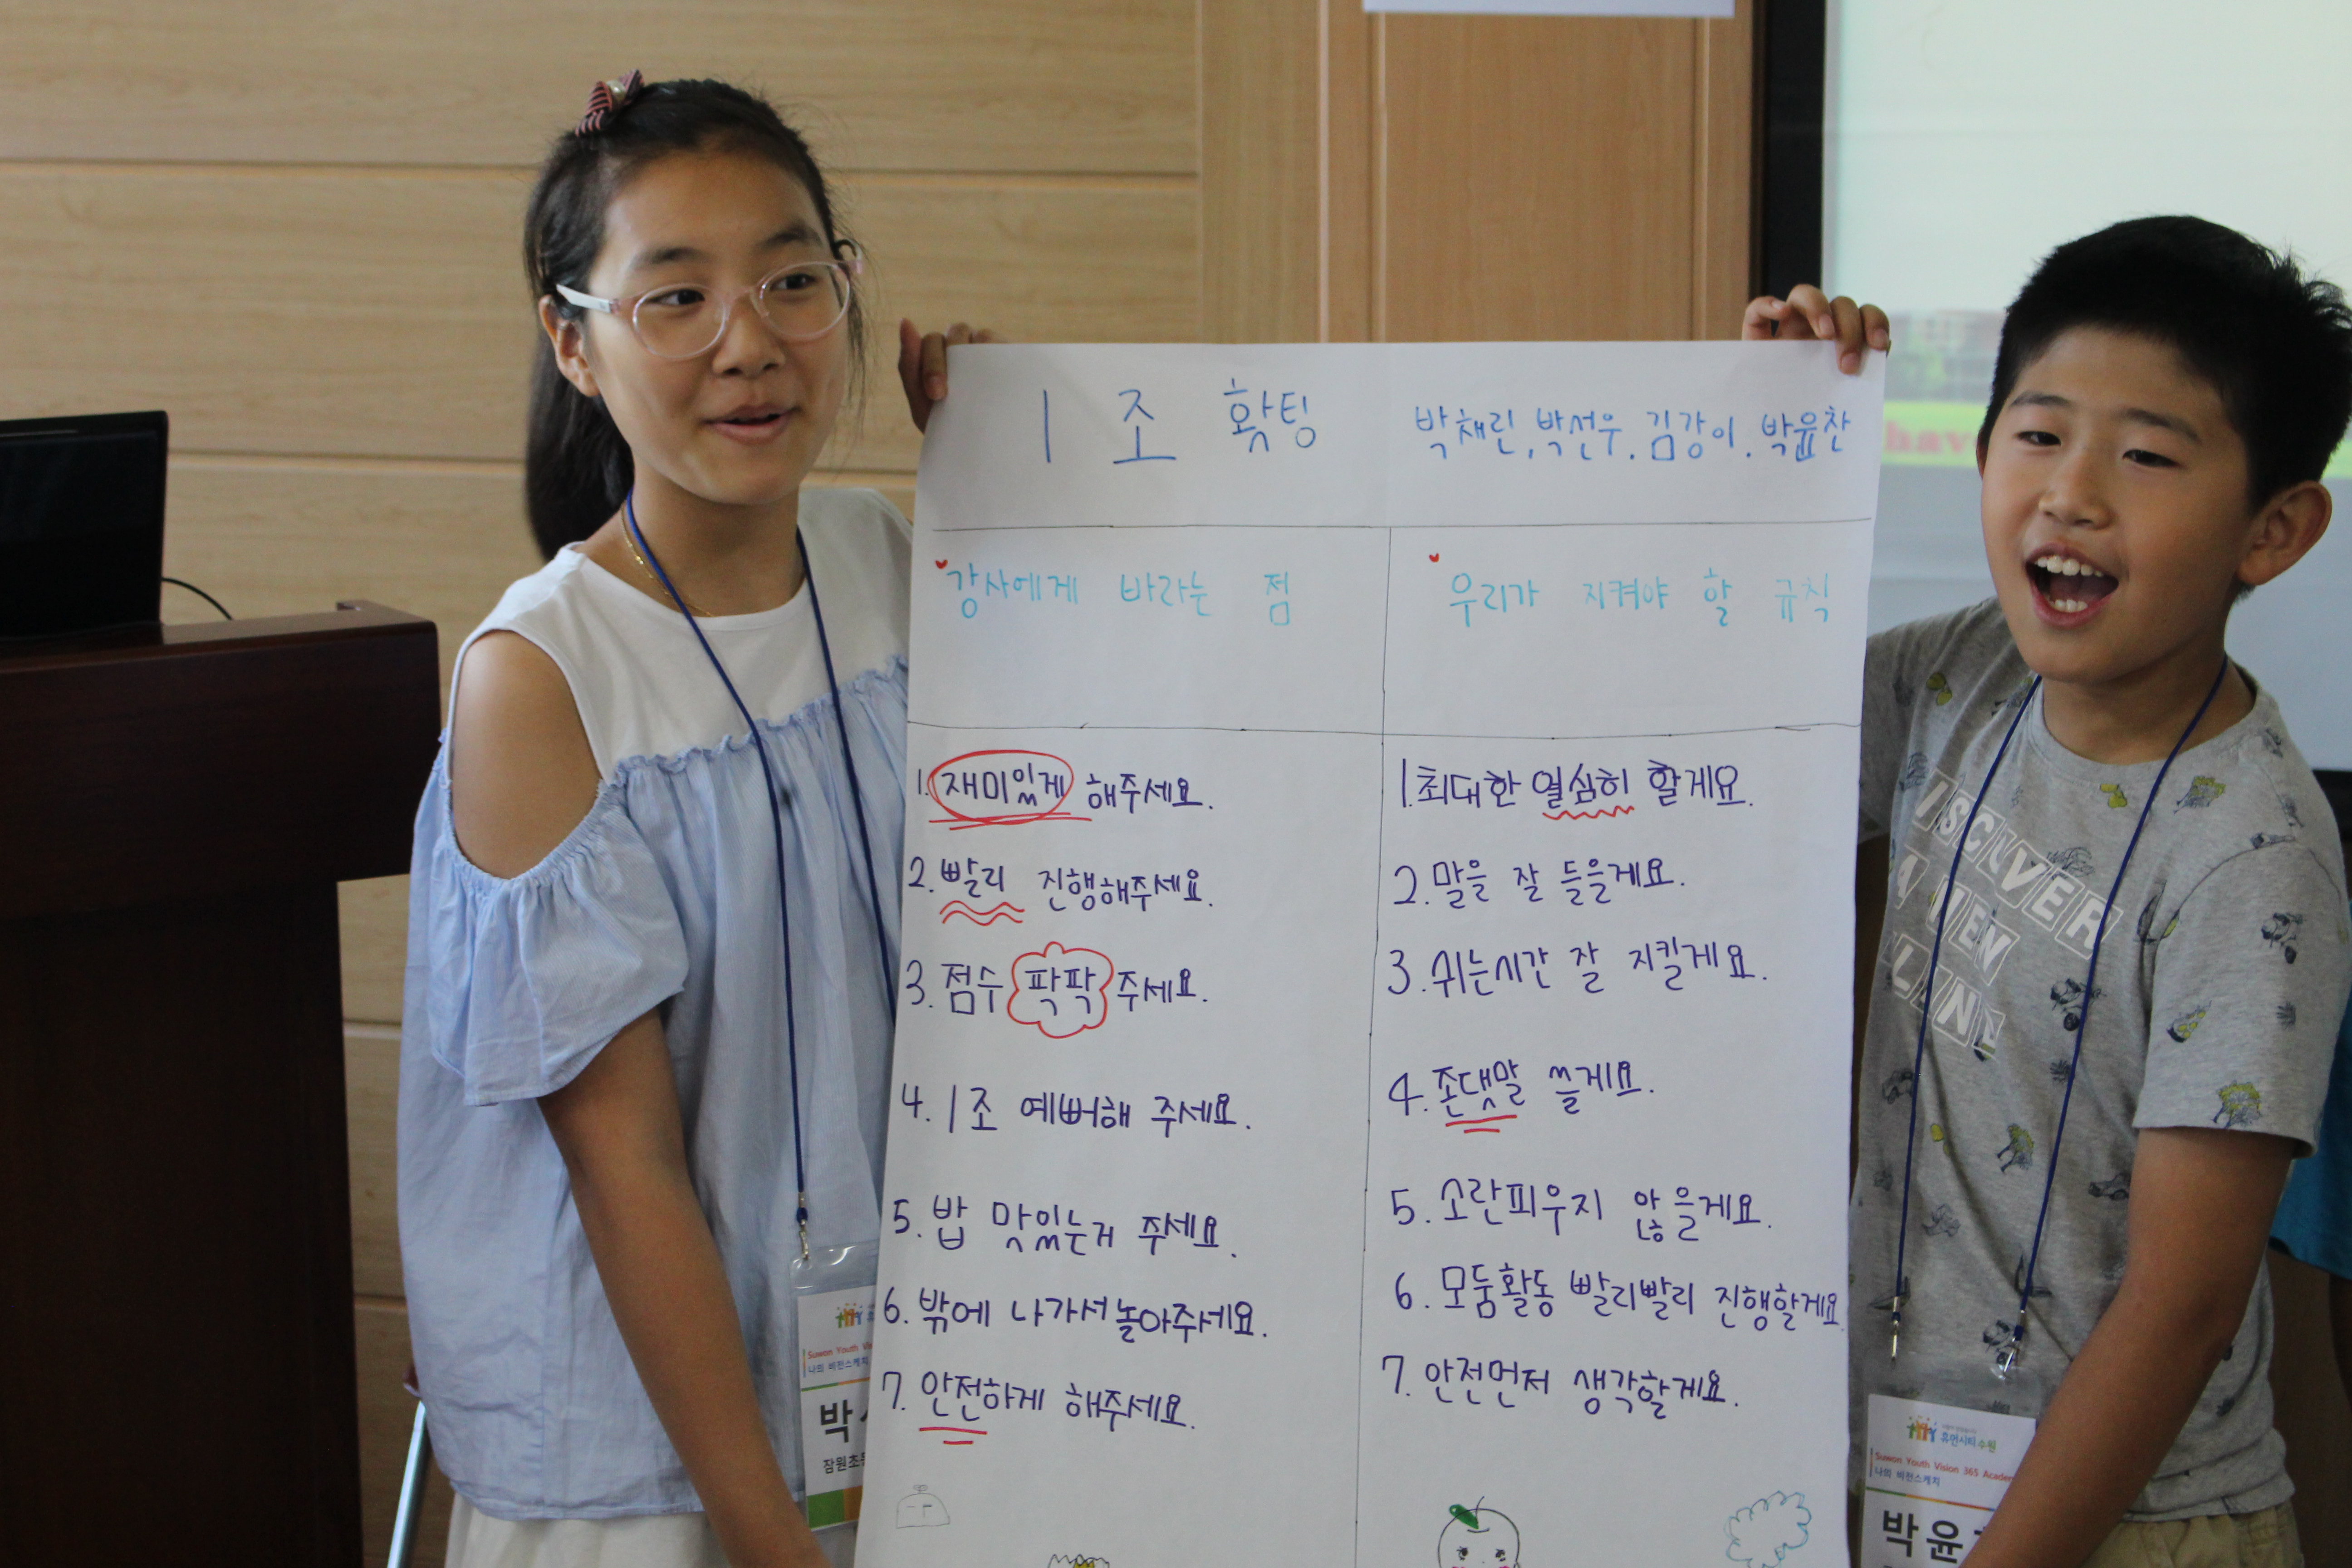 1 조 홧팅
박채린, 박선우, 김강이, 박윤찬
강사에게 바라는 점
우리가 지켜야 할 규칙
1. 재미있게 해주세요.
2. 빨리 진행해주세요.
3. 점수 팍팍 주세요.
4. 1조 예뻐해 주세요.
5. 밥 맛있는거 주세요.
6. 밖에 나가서 놀아주세요.
7. 안전하게 해주세요.
1. 최대한 열심히 할게요.
2. 말을 잘 들을게요.
3. 쉬는시간 잘 지킬게요.
4. 존댓말 쓸게요.
5. 소란피우지 않을게요.
6. 모둠활동 빨리빨리 진행할게요.
7. 안전먼저 생각할게요.
Suwon Youth
나의 비전스케치
박
잠원초등
휴먼시티 수원
Suwon Youth Vision 365 Academ
나의 비전스케치
박 윤
have